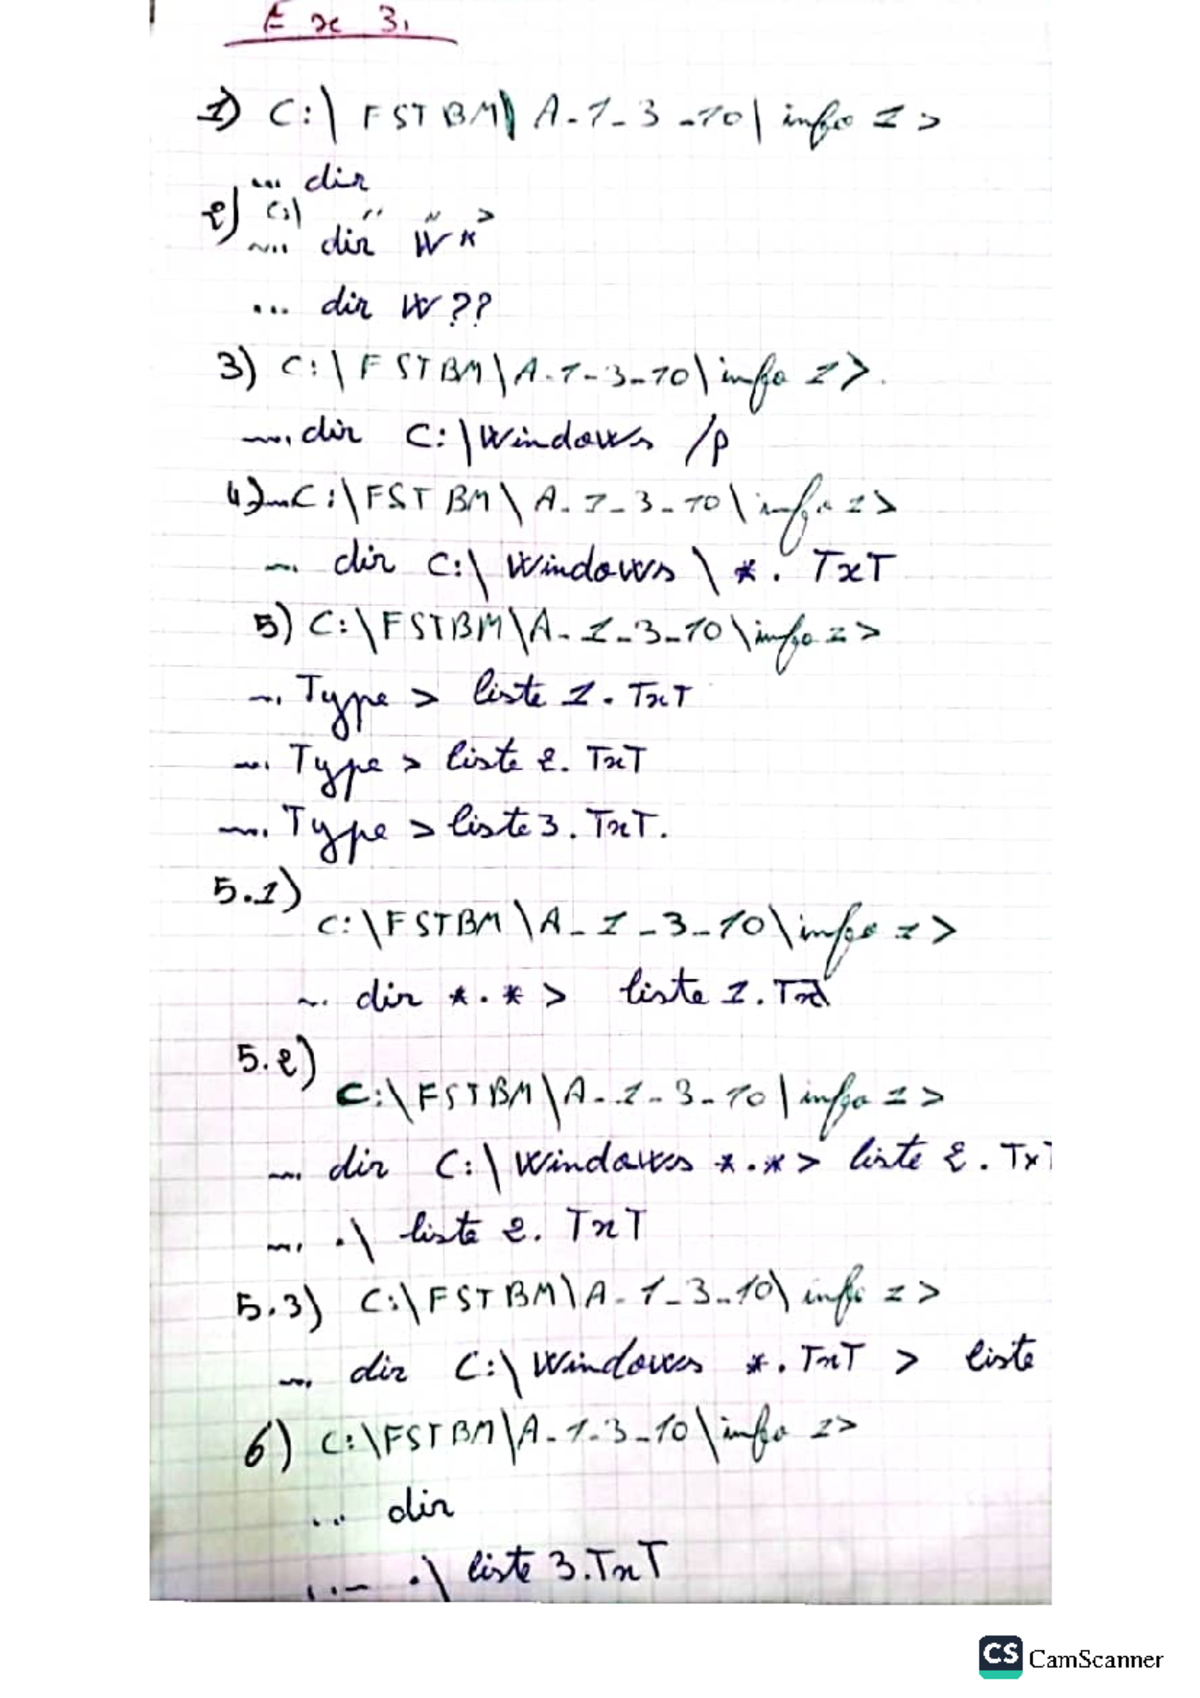 Ex 3.
1) C:\FSTBM\A-1-3-10\info 1>
... dir
2) C:\ " " >
... dir W*
... dir W??
3) C:\FSTBM\A-1-3-10\info 1>.
... dir C:\Windows /p
4) ...C:\FSTBM\A-1-3-10\info 1>
... dir C:\Windows\*.TxT
5) C:\FSTBM\A-1-3-10\info 1>
... Type > liste 1.TxT
... Type > liste 2.TxT
... Type > liste 3.TxT.
5.1)
C:\FSTBM\A-1-3-10\info 1>
... dir *.* > liste 1.Txt
5.2)
C:\FSTBM\A-1-3-10\info 1>
... dir C:\Windows *.* > liste 2.TxT
... .\ liste 2.TxT
5.3) C:\FSTBM\A-1-3-10\info 1>
... dir C:\Windows *.TxT > liste
6) C:\FSTBM\A-1-3-10\info 1>
... dir
... .\ liste 3.TxT
CS CamScanner